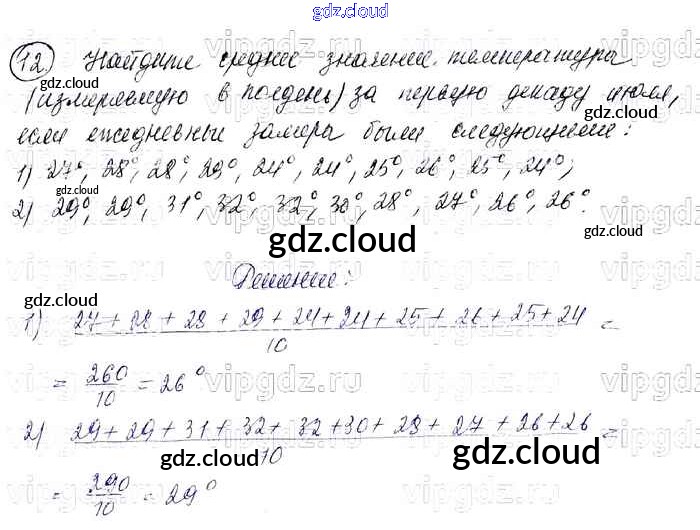 gdz.cloud
12 Найдите среднее значение температуры
(измеряемую в полдень) за первую декаду июля,
если ежедневные замеры были следующими:
1) 27°, 28°, 28°, 29°, 24°, 24°, 25°, 26°, 25°, 24°;
2) 29°, 29°, 31°, 32°, 32°, 30°, 28°, 27°, 26°, 26°.
gdz.cloud
Решение:
1) 27 + 28 + 28 + 29 + 24 + 24 + 25 + 26 + 25 + 24 =
10
= 260/10 = 26°
2) 29 + 29 + 31 + 32 + 32 + 30 + 28 + 27 + 26 + 26 =
10
= 290/10 = 29°
gdz.cloud
vipgdz.ru